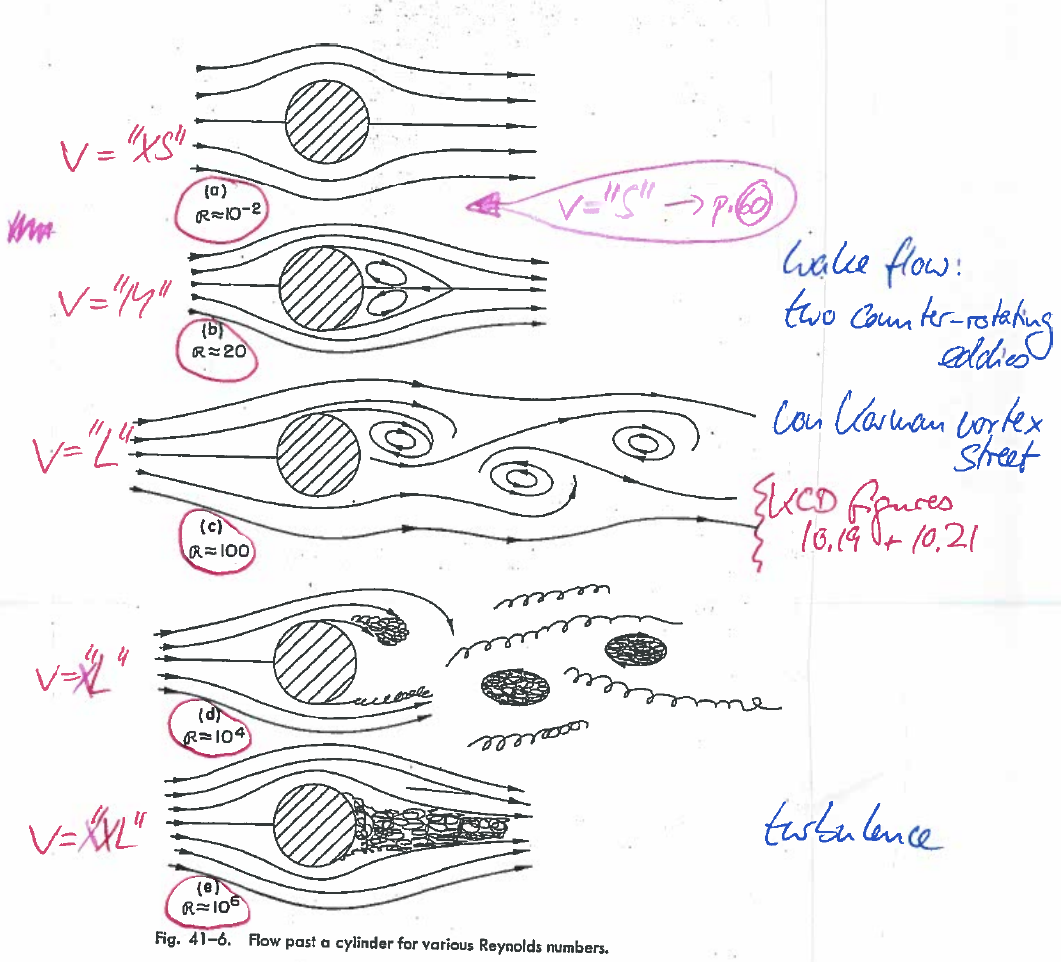 V = "XS"
(a)
ℛ≈10⁻²
V="S" → p. 60
V="M"
(b)
ℛ≈20
wake flow:
two counter-rotating
eddies
V="L"
(c)
ℛ≈100
von Karman vortex
street
KCD figures
10.19 + 10.21
V="XL"
(d)
ℛ≈10⁴
V="XXL"
(e)
ℛ≈10⁶
turbulence
Fig. 41–6. Flow past a cylinder for various Reynolds numbers.